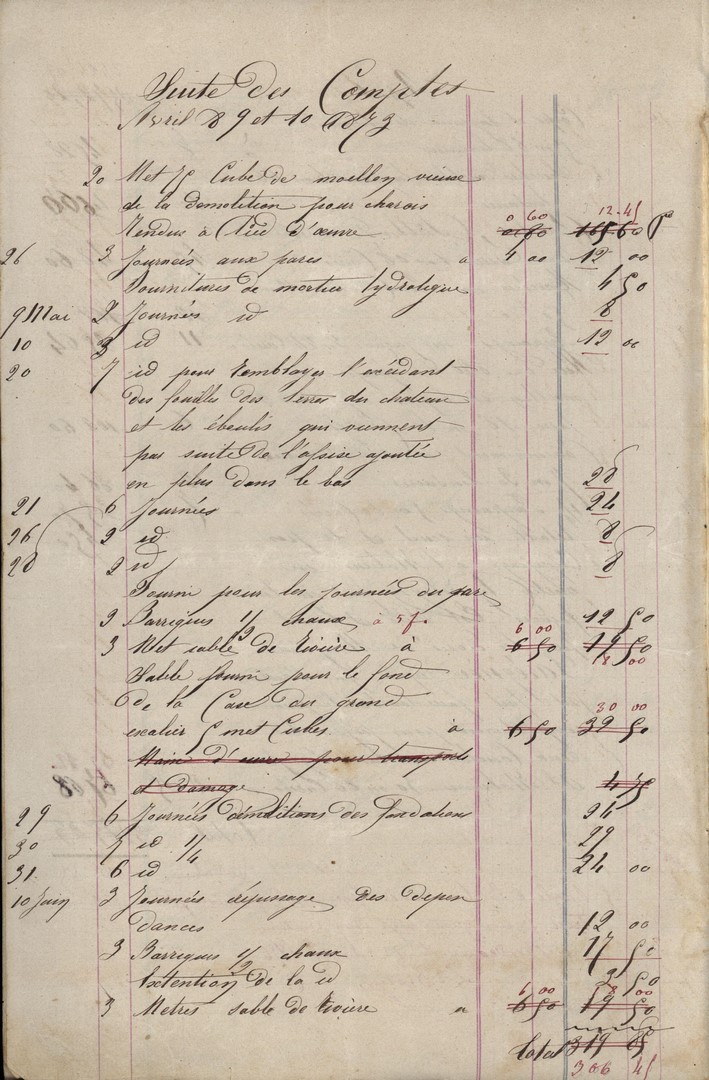 Suite des Comptes
Avril 8 9 et 10 1873
20 Met Cube de moellon vieux
de la demolition pour charois
Rendus à Pied d'œuvre 0 60 12.45
26 3 Journeés aux pares à 4 00 12 00
Fournitures de mortier hydrolique 4 50
9 Mai 2 Journés id 8
10 3 id 12 00
20 7 id pour Remblayer l'excédant
des fouilles des terres du chateau
et les éboulis qui viennent
par suite de l'assise ajoutée
en plus dans le bas 28
21 6 Journées 24
26 2 id 8
28 2 id 8
Fourni pour les journées du pare
2 Barriques 1/2 chaux à 5f. 12 50
3 Met sable de Rivière à 6 50 6 00 19 50 18 00
Sable fourni pour le fond
de la Cave du grand
escalier 5 met Cubes à 6 50 39 50 30 00
Main d'œuvre pour transports
et Damage 4 50
29 6 Journées démolitions des fondations 24
30 7 id 1/4 29
31 6 id 24 00
10 Juin 3 Journées dépussage des depen
dances 12 00
3 Barriques 1/2 chaux 17 50
Extention de la id 2 50
3 Metres sable de Rivière a 6 50 6 00 19 50 18 00
total 319 85
306 45